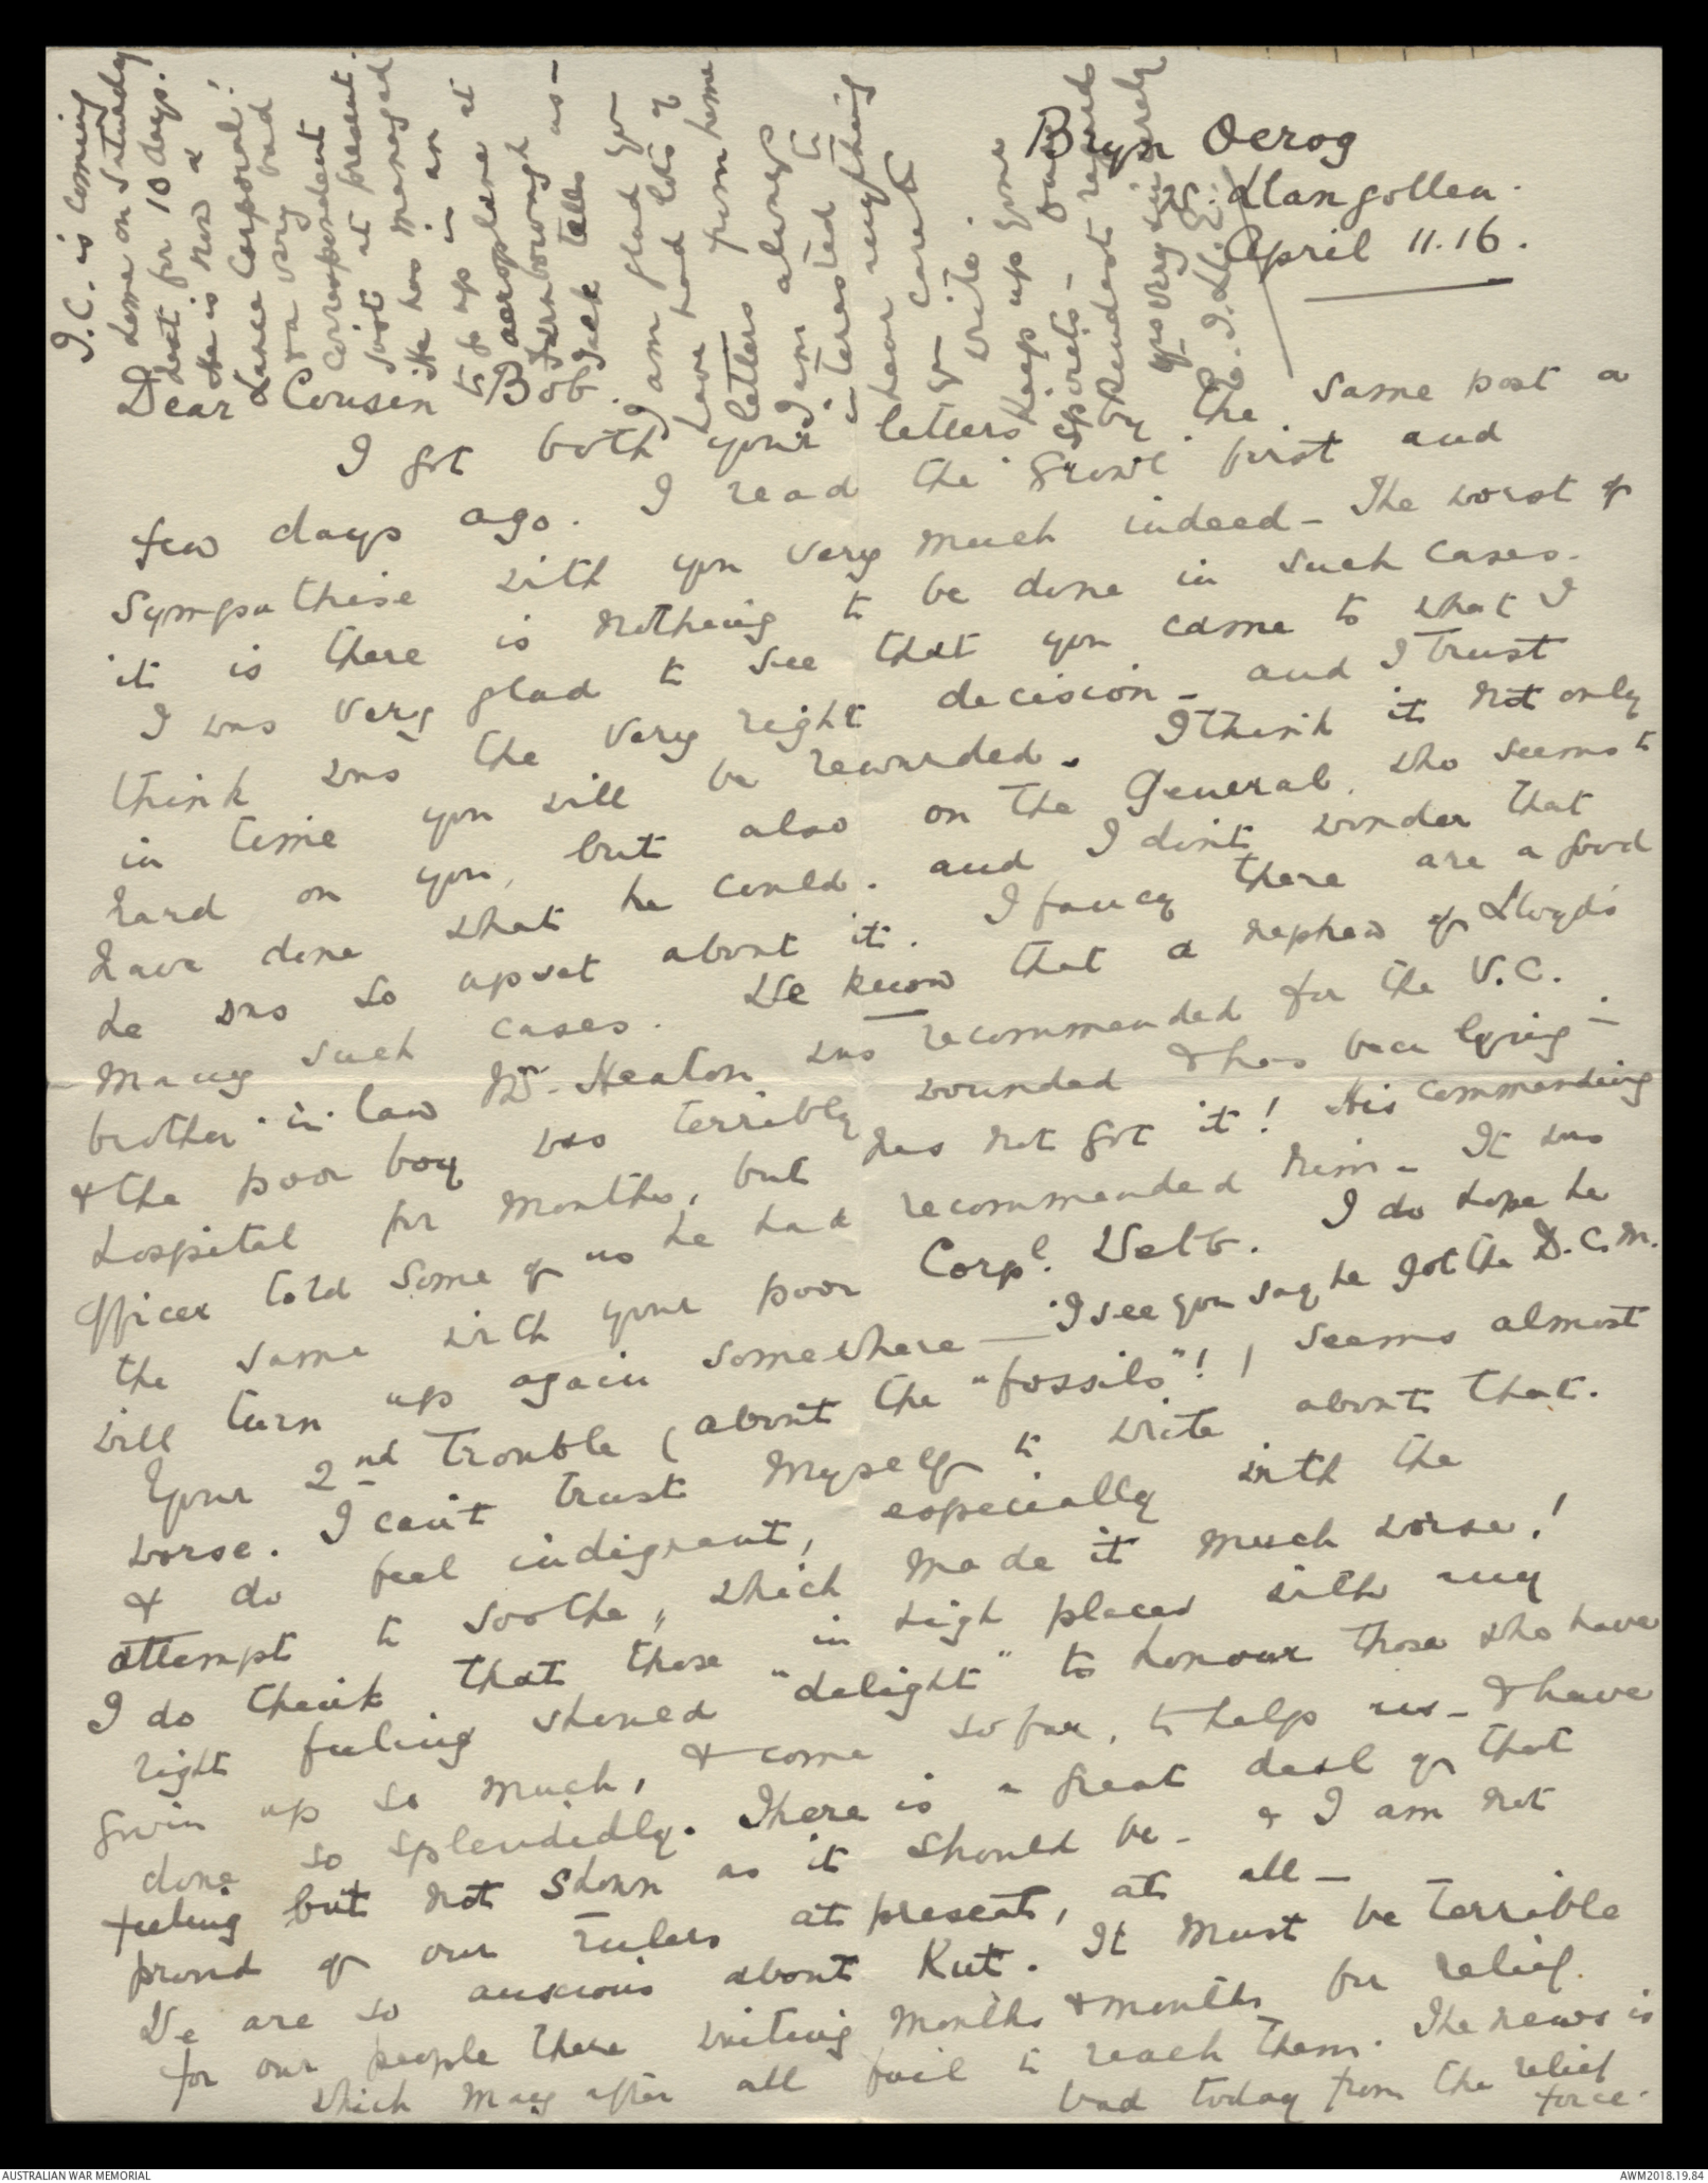 Bryn Oerog
N. Llangollen.
April 11.16.
Dear Cousin Bob.
I got both your letters by the same post a
few days ago. I read the "growl" first and
sympathise with you very much indeed - The worst of
it is there is nothing to be done in such cases.
I was very glad to see that you came to what I
think was the very right decision - and I trust
in time you will be rewarded. I think it not only
hard on you, but also on the General, who seems to
have done what he could. and I don't wonder that
he was so upset about it. I fancy there are a good
many such cases. We know that a nephew of Lloyd's
brother-in-law Mr. Heaton was recommended for the V.C.
& the poor boy was terribly wounded & has been lying in
hospital for months, but has not got it! His commanding
officer told some of us he had recommended him - It was
the same with your poor Corpl. Webb. I do hope he
will turn up again somewhere - I see you say he got the D.C.M.
Your 2nd trouble (about the "fossils"!) seems almost
worse. I can't trust myself to write about that.
& do feel indignant, especially with the
attempt to soothe, which made it much worse!
I do think that those in high places with any
right feeling should "delight" to honour those who have
given up so much, & come so far, to help us - & have
done so splendidly. There is a great deal of that
feeling but not shown as it should be - & I am not
proud of our rulers at present, at all -
We are so anxious about Kut. It must be terrible
for our people there waiting months & months for relief
which may after all fail to reach them. The news is
bad today from the relief
force.
J.C. is coming
home on Saturday
next for 10 days.
He is now a
Lance Corporal!
a very bad
correspondent
just at present.
He has managed
to go up in an
aeroplane at
Farnborough
Jack tells us -
I am glad you
have had lots of
letters from home
I am always
interested to
hear anything
you care to
write.
Keep up your
spirits -
Kindest regards
yrs very sincerely
AUSTRALIAN WAR MEMORIAL
AWM2018.19.84